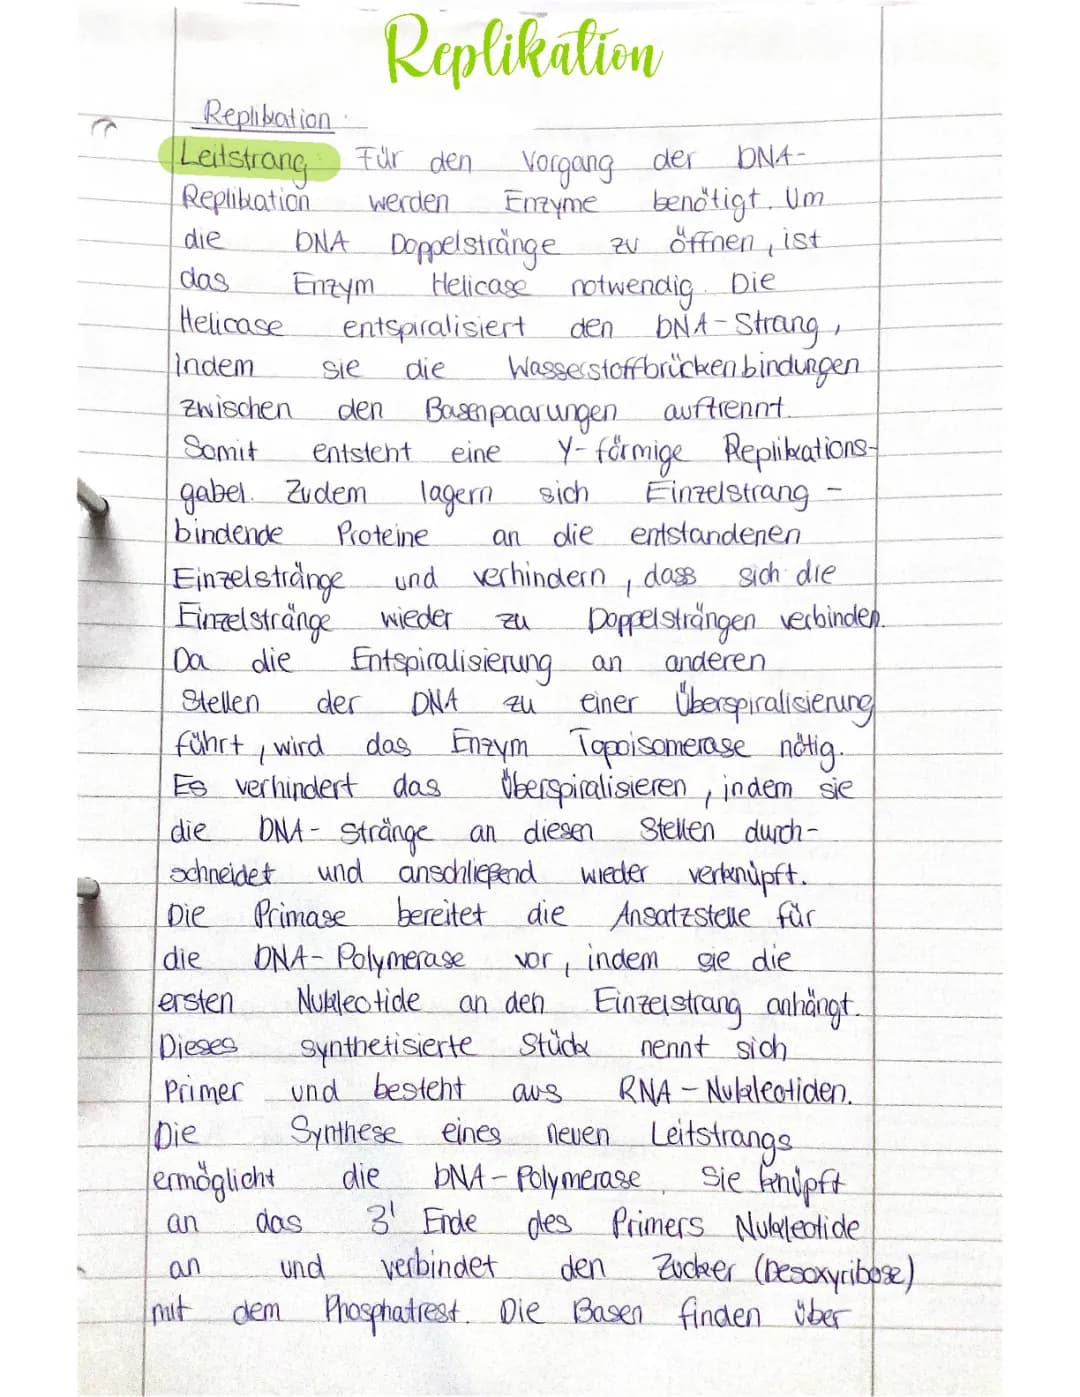 Replikation
Replikation.
Leitstrang Für den Vorgang der DNA-
Replikation werden Enzyme benötigt. Um
die DNA Doppelstränge zu öffnen, ist
das Enzym Helicase notwendig. Die
Helicase entspiralisiert den DNA-Strang,
indem sie die Wasserstoffbrückenbindungen
zwischen den Basenpaarungen auftrennt.
Somit entsteht eine Y-förmige Replikations-
gabel. Zudem lagern sich Einzelstrang-
bindende Proteine an die entstandenen
Einzelstränge und verhindern, dass sich die
Einzelstränge wieder zu Doppelsträngen verbinden.
Da die Entspiralisierung an anderen
Stellen der DNA zu einer Überspiralisierung
führt, wird das Enzym Topoisomerase nötig.
Es verhindert das Überspiralisieren, indem sie
die DNA-Stränge an diesen Stellen durch-
schneidet und anschließend wieder verknüpft.
Die Primase bereitet die Ansatzstelle für
die DNA-Polymerase vor, indem sie die
ersten Nukleotide an den Einzelstrang anhängt.
Dieses synthetisierte Stück nennt sich
Primer und besteht aus RNA-Nukleotiden.
Die Synthese eines neuen Leitstrangs
ermöglicht die DNA-Polymerase. Sie knüpft
an das 3' Ende des Primers Nukleotide
an und verbindet den Zucker (Desoxyribose)
mit dem Phosphatrest. Die Basen finden über